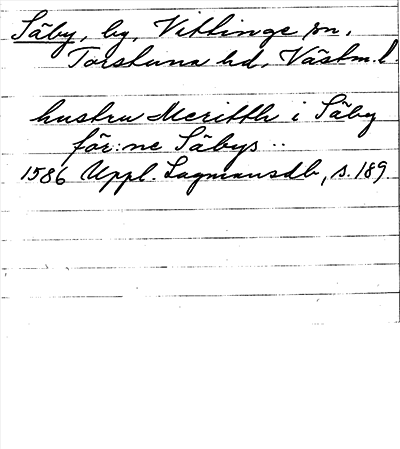 Säby, by, Vittinge sn,
Torstuna hd, Västm.l.
hustru Meritth i Säby
för:ne Säbys ..
1586 Uppl. Lagmansdb, s. 189